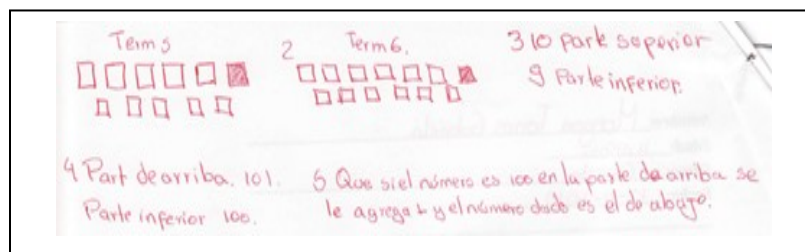 Term 5
2 Term 6.
3 10 Parte soperior
9 Parte inferior.
4 Part de arriba. 101.
Parte inferior 100.
5 Que si el número es 100 en la parte de arriba se
le agrega 1 y el número dado es el de abajo.